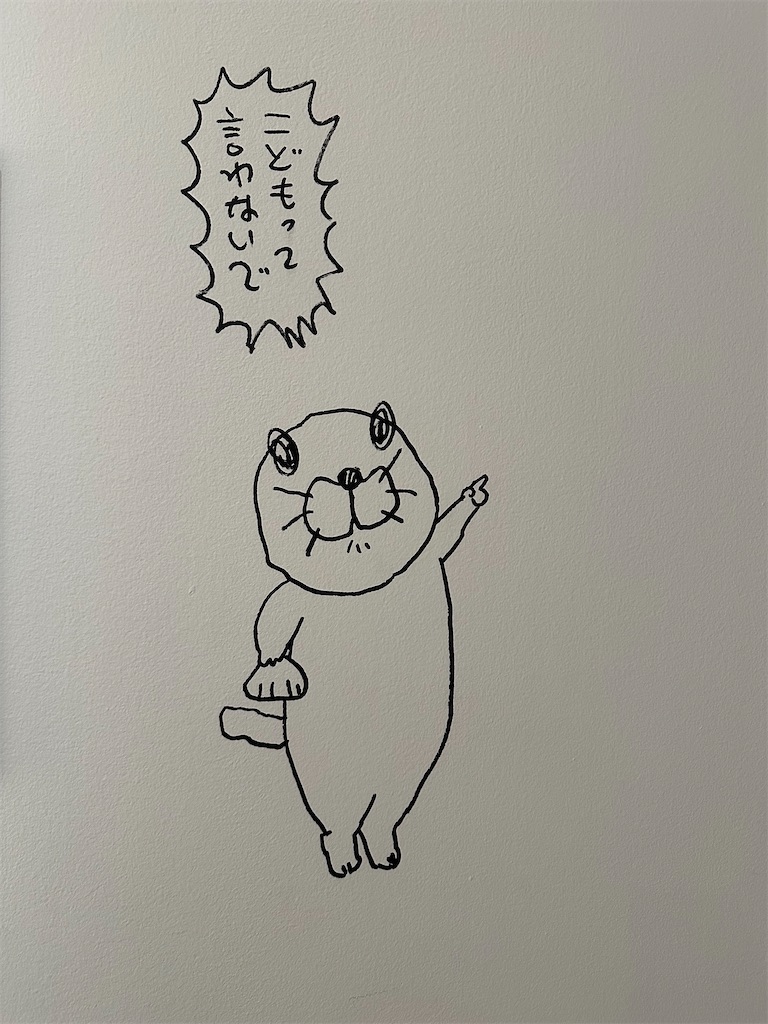 こどもって
言わないで